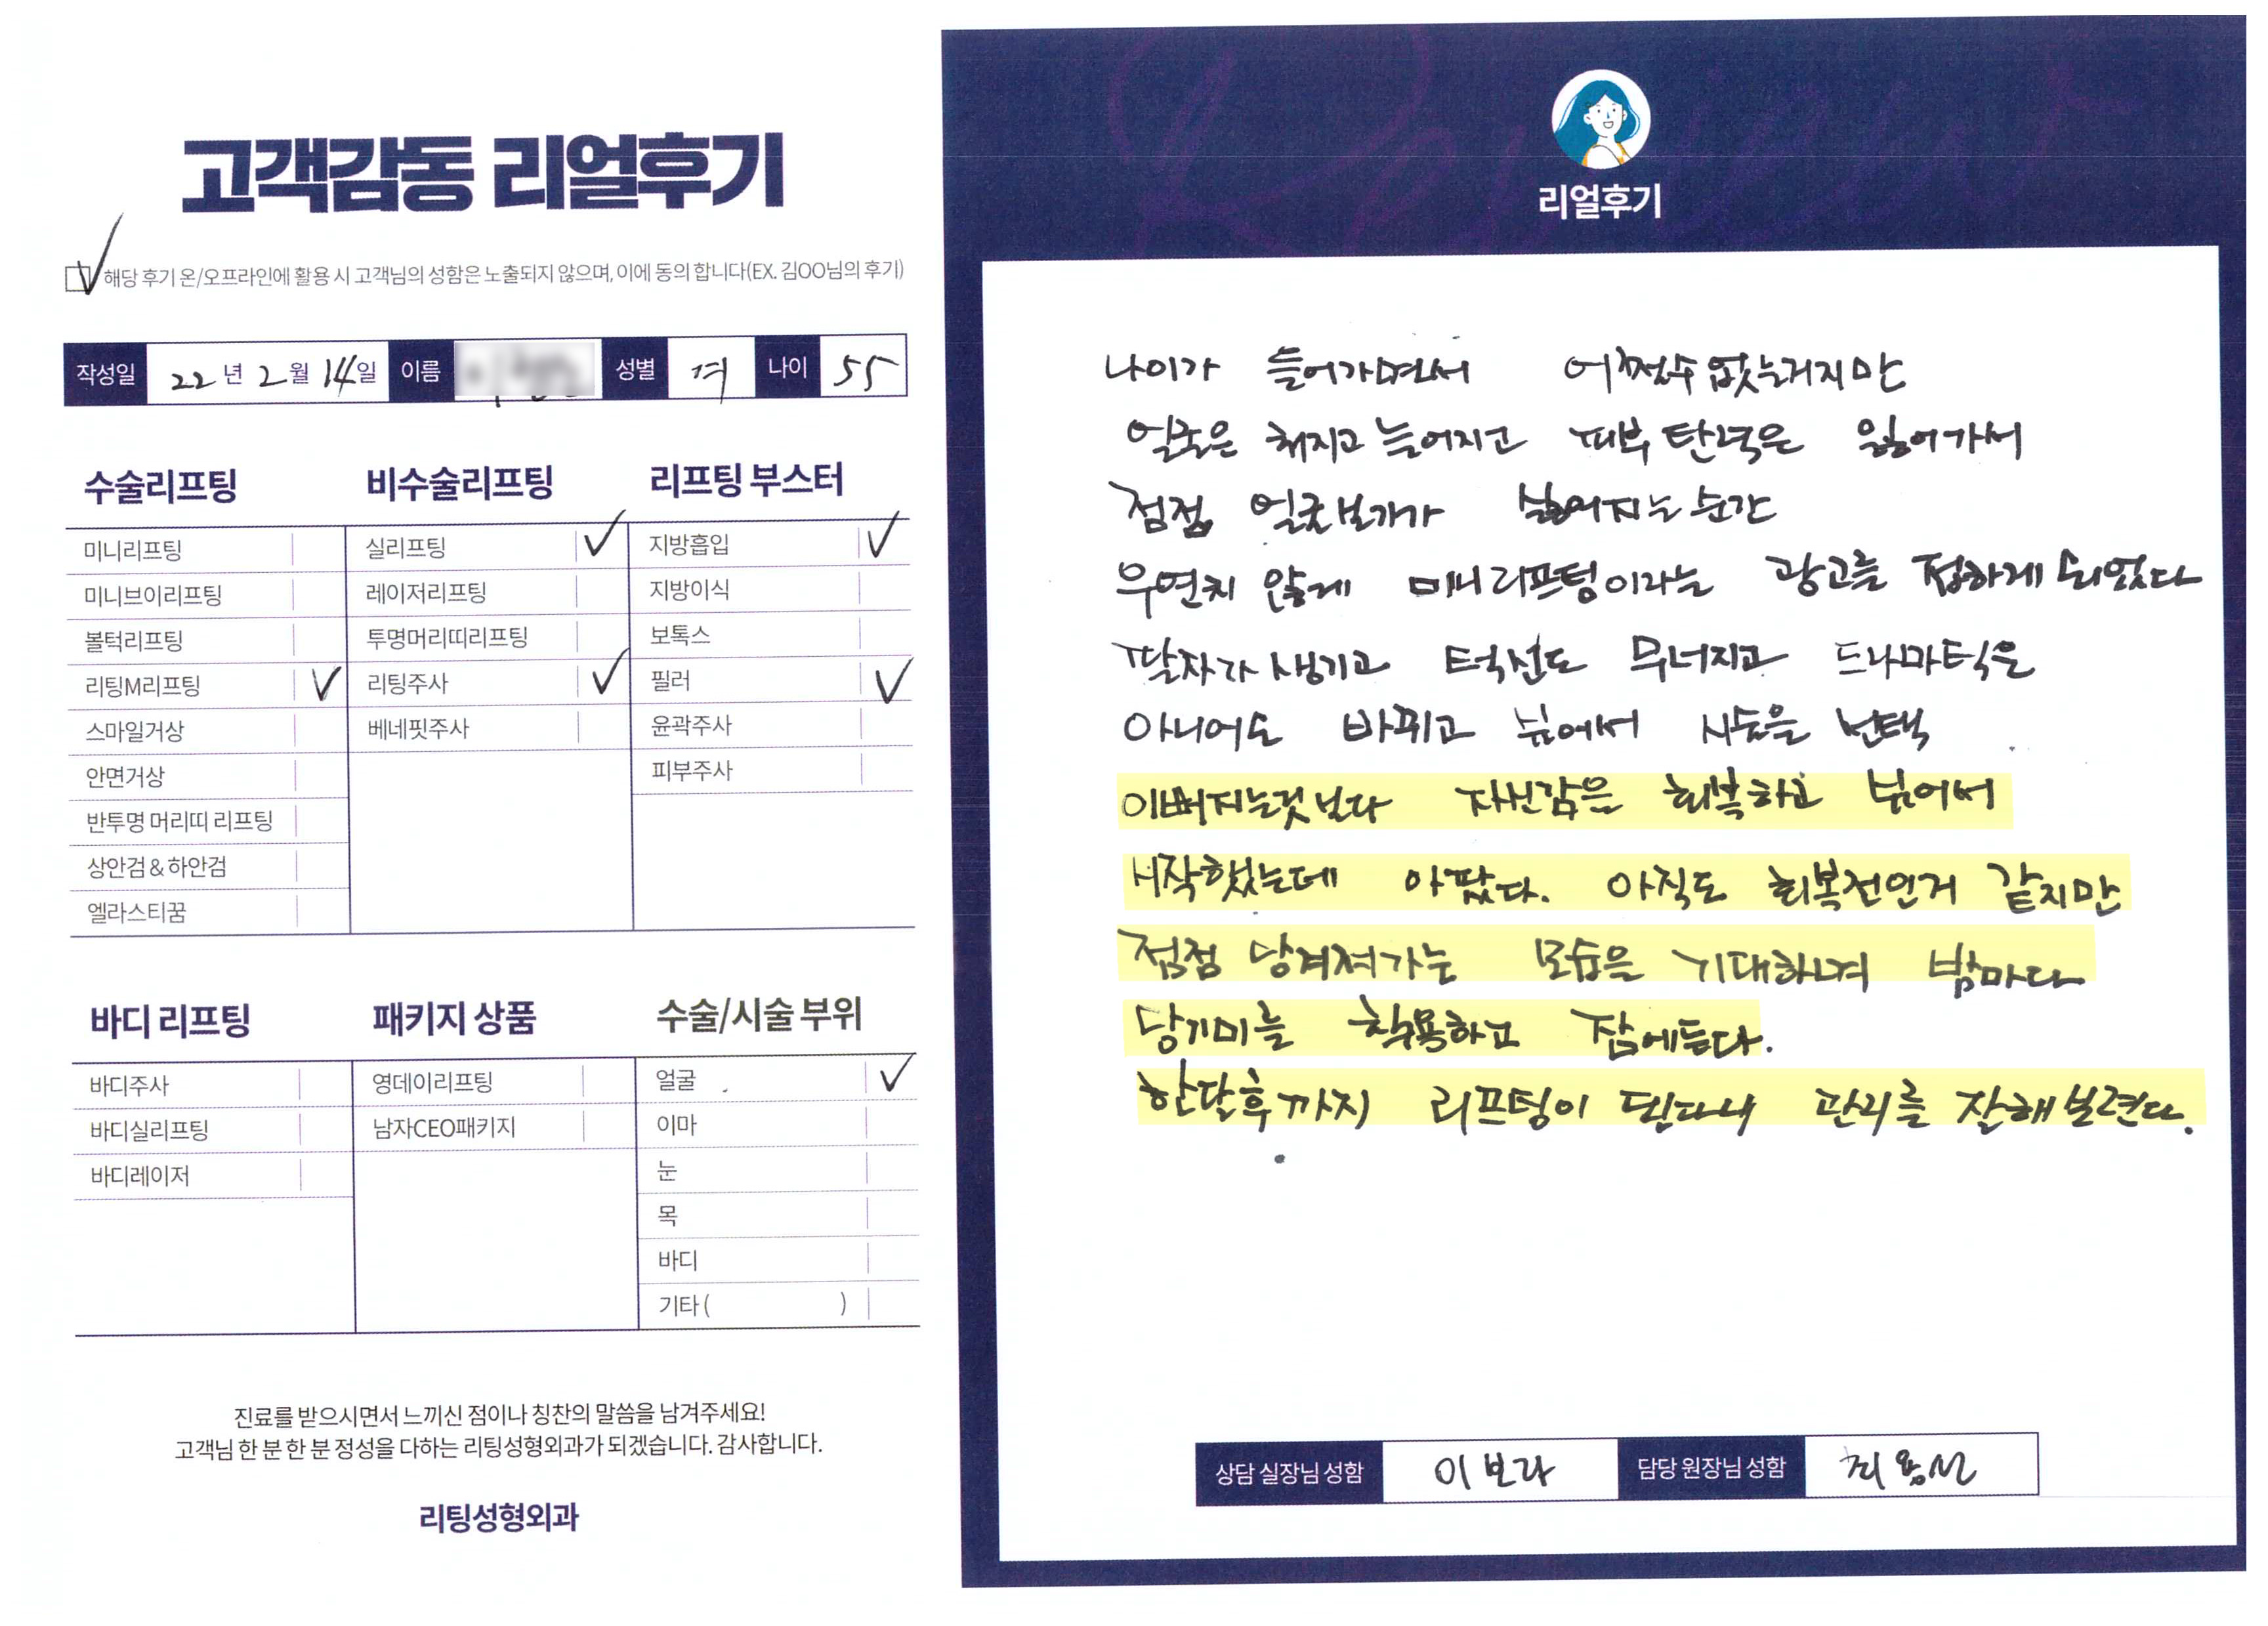 고객감동 리얼후기
해당 후기 온/오프라인에 활용 시 고객님의 성함은 노출되지 않으며, 이에 동의 합니다(EX. 김OO님의 후기)
작성일 22년 2월 14일 이름 성별 여 나이 55
수술리프팅
미니리프팅
미니브이리프팅
볼턱리프팅
리팅M리프팅 ✓
스마일거상
안면거상
반투명 머리띠 리프팅
상안검&하안검
엘라스티꿈
비수술리프팅
실리프팅 ✓
레이저리프팅
투명머리띠리프팅
리팅주사 ✓
베네핏주사
리프팅 부스터
지방흡입 ✓
지방이식
보톡스
필러 ✓
윤곽주사
피부주사
바디 리프팅
바디주사
바디실리프팅
바디레이저
패키지 상품
영데이리프팅
남자CEO패키지
수술/시술 부위
얼굴 ✓
이마
눈
목
바디
기타 ( )
진료를 받으시면서 느끼신 점이나 칭찬의 말씀을 남겨주세요!
고객님 한 분 한 분 정성을 다하는 리팅성형외과가 되겠습니다. 감사합니다.
리팅성형외과
리얼후기
나이가 들어가면서 어쩔수 없는거지만
얼굴은 쳐지고 늘어지고 피부 탄력은 잃어가서
점점 얼굴보기가 싫어지는 순간
우연치 않게 미니리프팅이라는 광고를 접하게 되었다
팔자가 생기고 턱선도 무너지고 드라마틱은
아니어도 바뀌고 싶어서 시술을 선택
이뻐지는것보다 자신감을 회복하고 싶어서
시작했는데 아팠다. 아직도 회복전인거 같지만
점점 당겨져가는 모습을 기대하며 밤마다
당기미를 착용하고 잠에든다.
한달후까지 리프팅이 된다니 관리를 잘해보련다.
상담 실장님 성함 이보라 담당 원장님 성함